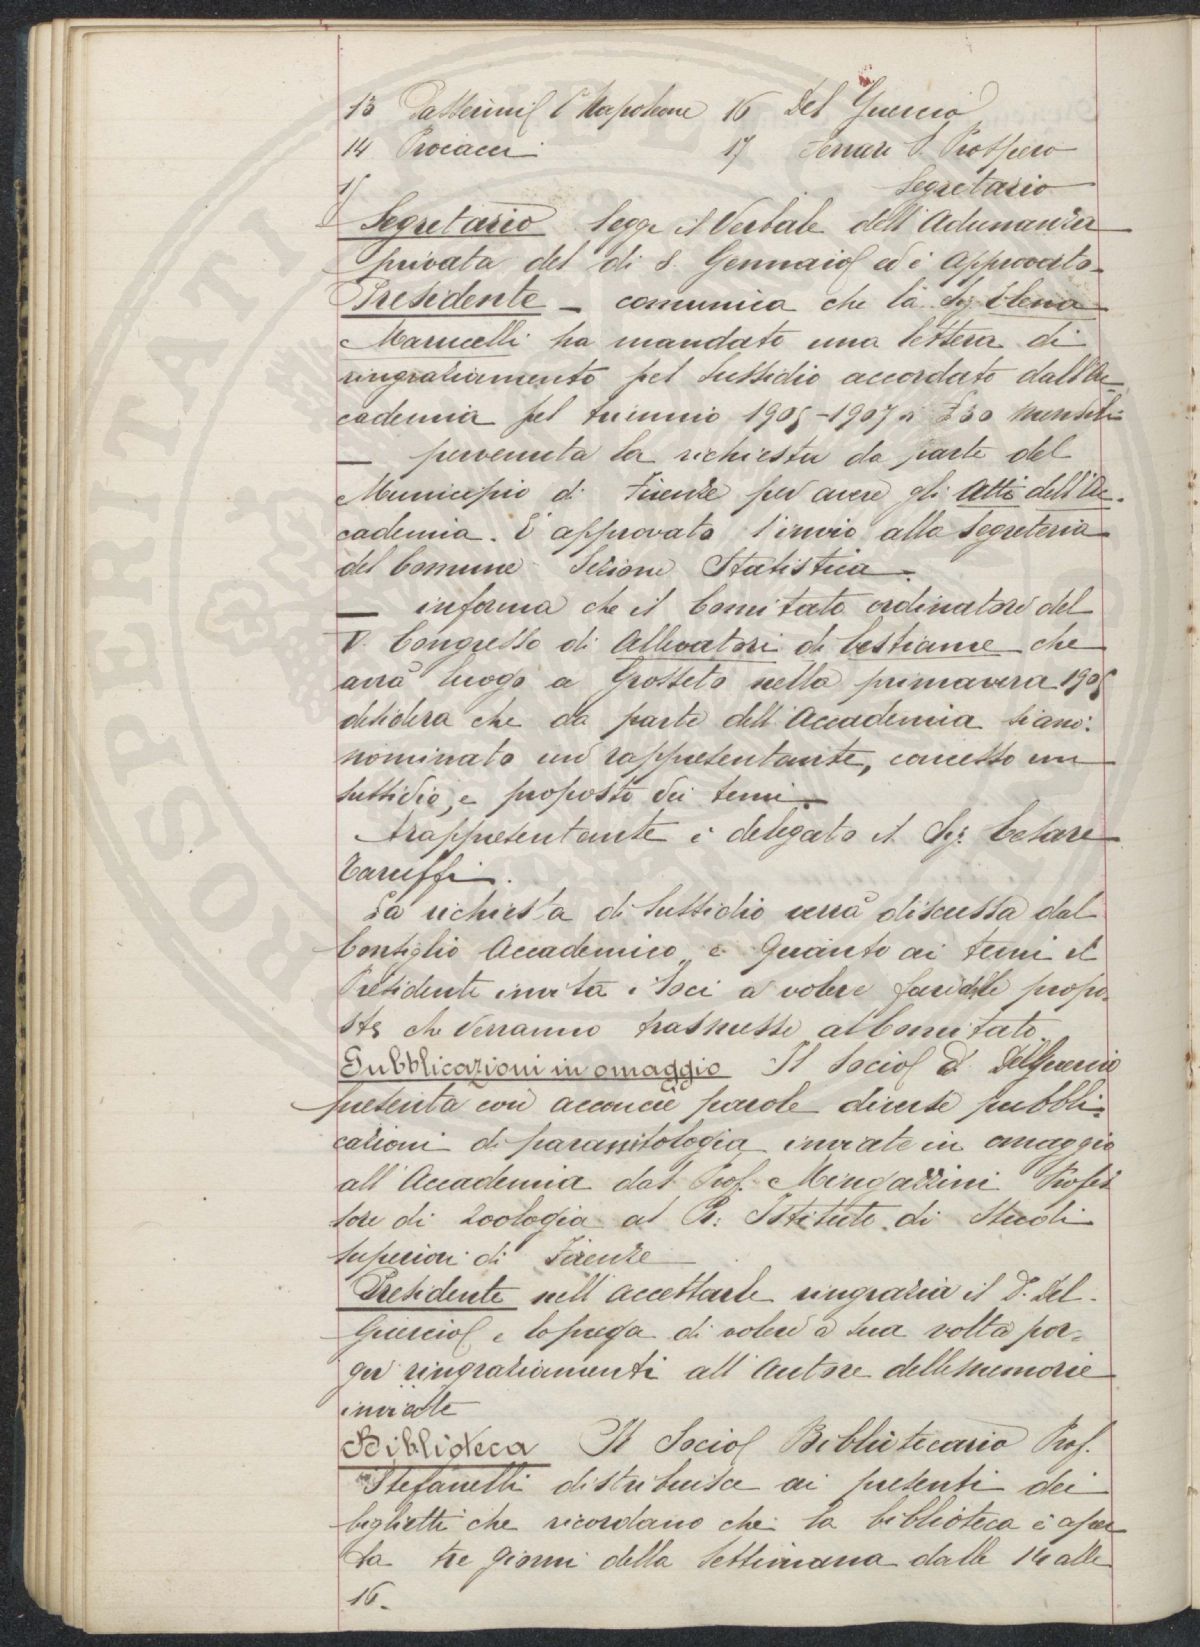 13 Passerini C. Napoleone 16 Del Guercio
14 Procacci 17 Ferrari P. Prospero
15 Segretario
Segretario legge il Verbale dell'Adunanza
privata del di 8 Gennaio ed è approvato.
Presidente – comunica che la Sig. Elena
Marucelli ha mandato una lettera di
ringraziamento pel sussidio accordato dall'Ac-
cademia pel triennio 1905-1907 a £30 mensili
— pervenuta la richiesta da parte del
Municipio di Firenze per avere gli Atti dell'Ac-
cademia. È approvato l'invio alla Segreteria
del Comune Sezione Statistica.
— informa che il Comitato ordinatore del
V. Congresso di allevatori di bestiame che
avrà luogo a Grosseto nella primavera 1905
desidera che da parte dell'Accademia siano:
nominato un rappresentante, concesso un
sussidio, e proposto dei temi.
A rappresentante è delegato il Sig. Cesare
Taruffi.
La richiesta di sussidio verrà discussa dal
Consiglio Accademico e quanto ai temi il
Presidente invita i Soci a volere fare delle propo-
ste che verranno trasmesse al Comitato
Pubblicazioni in omaggio Il Socio D. Del Guercio
presenta con acconcie parole diverse pubbli-
cazioni di parassitologia inviate in omaggio
all'Accademia dal Prof. Mingazzini Profes
sore di Zoologia al R: Istituto di Studi
superiori di Firenze
Presidente nell'accettarle ringrazia il D. Del
Guercio e lo prega di volere a sua volta por-
ger ringraziamenti all'autore delle memorie
inviate
Biblioteca Il Socio Bibliotecario Prof.
Stefanelli distribuisce ai presenti dei
biglietti che ricordano che la biblioteca è aper
ta tre giorni della settimana dalle 14 alle
16.